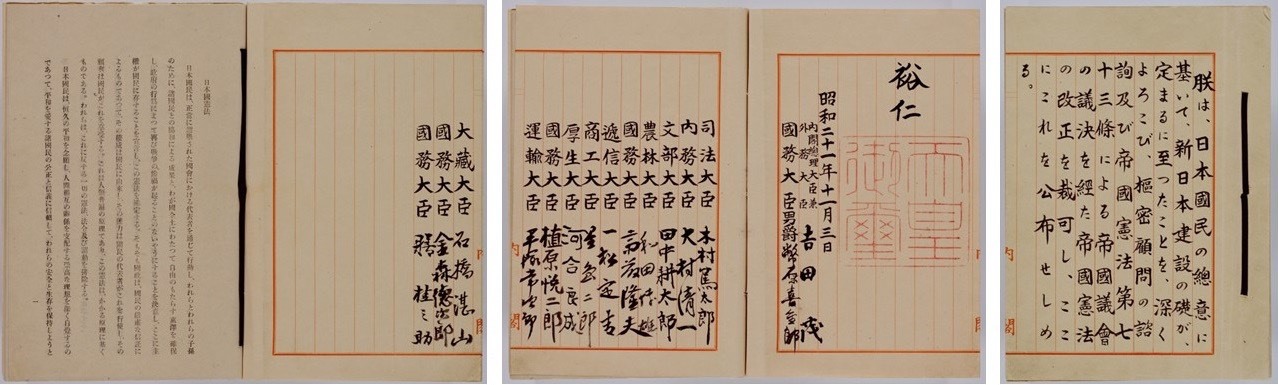 朕は、日本國民の總意に
基いて、新日本建設の礎が、
定まるに至つたことを、深く
よろこび、樞密顧問の諮
詢及び帝國憲法第七
十三條による帝國議會
の議決を経た帝國憲法
の改正を裁可し、ここ
にこれを公布せしめ
る。
内閣
裕仁
天皇御璽
昭和二十一年十一月三日
内閣總理大臣兼
外務大臣 吉田茂
國務大臣 男爵 幣原喜重郎
内閣
司法大臣 木村篤太郎
内務大臣 大村清一
文部大臣 田中耕太郎
農林大臣 和田博雄
國務大臣 斎藤隆夫
遞信大臣 一松定吉
商工大臣 星島二郎
厚生大臣 河合良成
國務大臣 植原悦二郎
運輸大臣 平塚常次郎
内閣
大藏大臣 石橋湛山
國務大臣 金森徳次郎
國務大臣 膳桂之助
日本國憲法
日本國民は、正當に選擧された國會における代表者を通じて行動し、われらとわれらの子孫
のために、諸國民との協和による成果と、わが國全土にわたつて自由のもたらす惠澤を確保
し、政府の行爲によつて再び戰爭の慘禍が起ることのないやうにすることを決意し、ここに主
權が國民に存することを宣言し、この憲法を確定する。そもそも國政は、國民の嚴肅な信託に
よるものであつて、その權威は國民に由來し、その權力は國民の代表者がこれを行使し、その
福利は國民がこれを享受する。これは人類普遍の原理であり、この憲法は、かかる原理に基く
ものである。われらは、これに反する一切の憲法、法令及び詔勅を排除する。
日本國民は、恒久の平和を念願し、人間相互の關係を支配する崇高な理想を深く自覺するの
であつて、平和を愛する諸國民の公正と信義に信頼して、われらの安全と生存を保持しようと
一